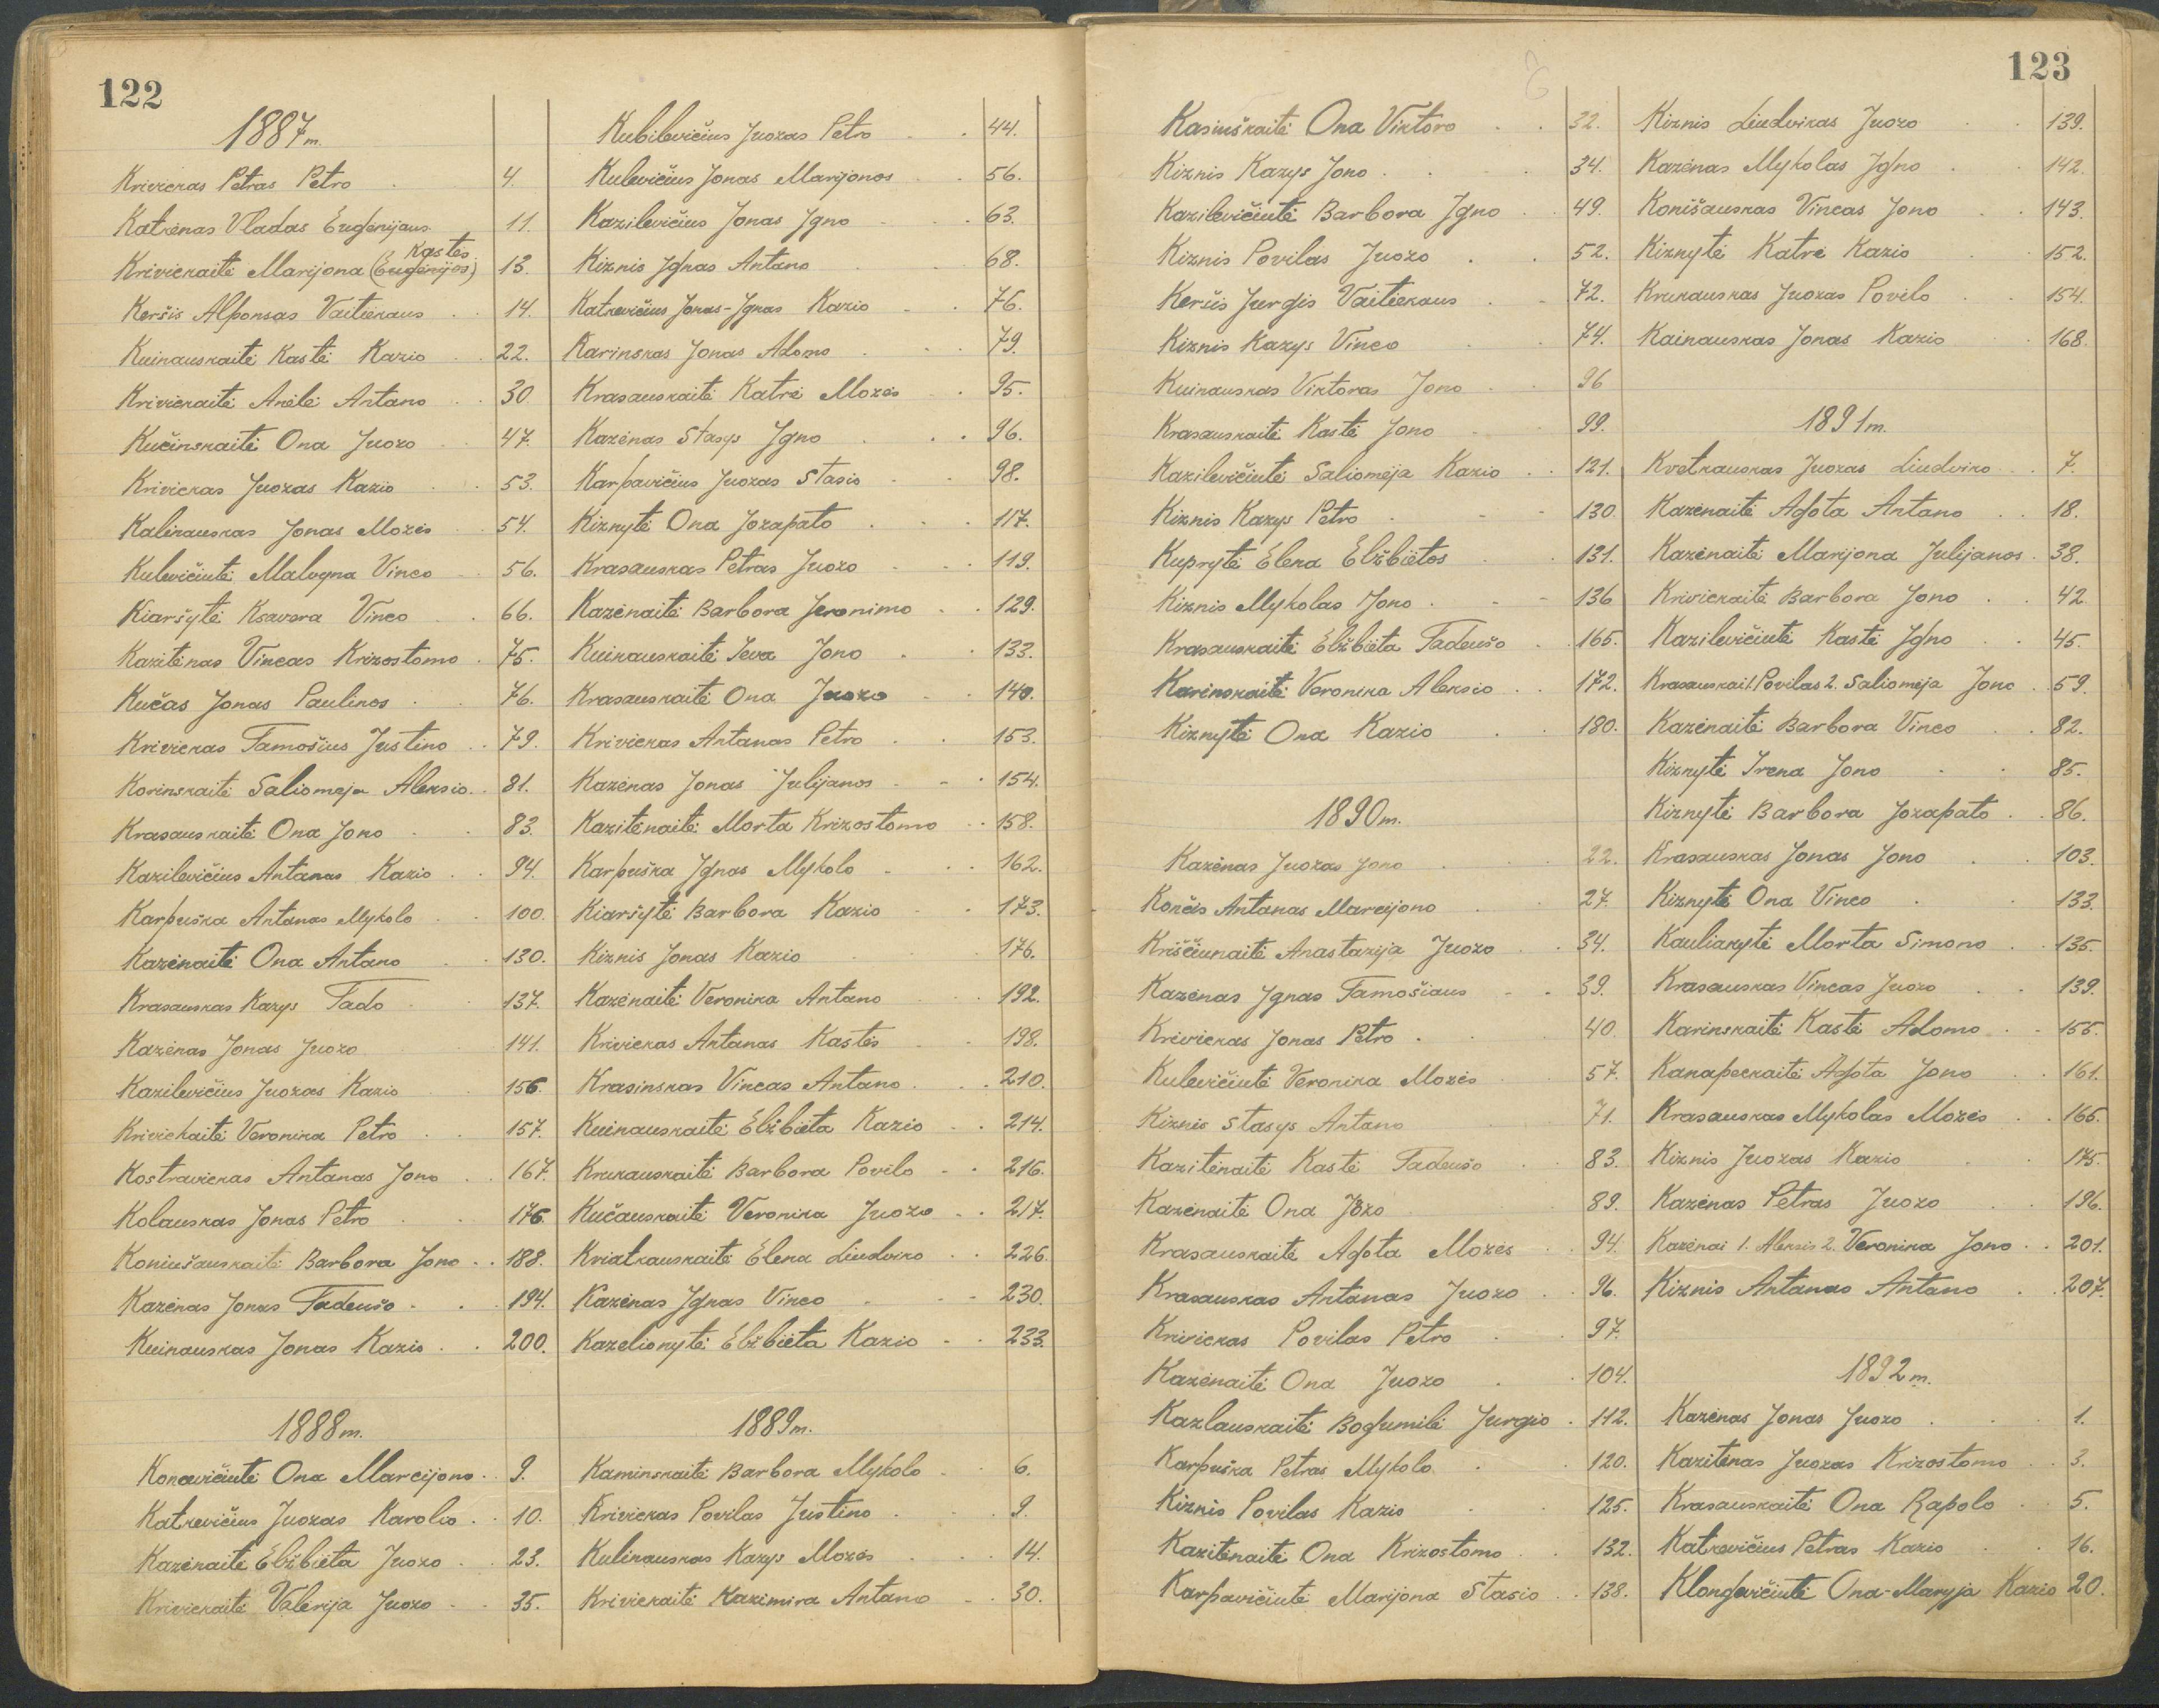 122
1887 m.
Krivickas Petras Petro 4.
Katrėnas Vladas Eugėnijaus 11.
Kastės
Krivickaitė Marijona (Eugėnijos) 13.
Keršis Alfonsas Vaitiekaus 14.
Kuinauskaitė Kastė Kazio 22.
Krivickaitė Anėlė Antano 30.
Kučinskaitė Ona Juozo 47.
Krivickas Juozas Kazio 53.
Kalinauskas Jonas Mozės 54.
Kulevičiutė Malvyna Vinco 56.
Kiaršytė Ksavera Vinco 66.
Kazitėnas Vincas Krizostomo 75.
Kučas Jonas Paulinos 76.
Krivickas Tamošius Justino 79.
Korinskaitė Saliomeja Aleksio 81.
Krasauskaitė Ona Jono 83.
Kazilevičius Antanas Kazio 94.
Karpuška Antanas Mykolo 100.
Kazėnaitė Ona Antano 130.
Krasauskas Kazys Tado 137.
Kazėnas Jonas Juozo 141.
Kazilevičius Juozas Kazio 156.
Krivickaitė Veronika Petro 157.
Kostravickas Antanas Jono 167.
Kolauskas Jonas Petro 176.
Koniušauskaitė Barbora Jono 188.
Kazėnas Jonas Tadeušo 194.
Kuinauskas Jonas Kazio 200.
1888 m.
Koncevičiutė Ona Marcijono 9.
Katkevičius Juozas Karolio 10.
Kazėnaitė Elžbieta Juozo 23.
Krivickaitė Valerija Juozo 35.
Kubilevičius Juozas Petro 44.
Kulevičius Jonas Marijonos 56.
Kazilevičius Jonas Igno 63.
Kiznis Ignas Antano 68.
Katkevičius Jonas-Ignas Kazio 76.
Karinskas Jonas Adomo 79.
Krasauskaitė Katrė Mozės 95.
Kazėnas Stasys Igno 96.
Karpavičius Juozas Stasio 98.
Kiznytė Ona Jozapato 117.
Krasauskas Petras Juozo 119.
Kazėnaitė Barbora Jeronimo 129.
Kuinauskaitė Ieva Jono 133.
Krasauskaitė Ona Juozo 140.
Krivickas Antanas Petro 153.
Kazėnas Jonas Julijanos 154.
Kazitėnaitė Morta Krizostomo 158.
Karpuška Ignas Mykolo 162.
Kiaršytė Barbora Kazio 173.
Kiznis Jonas Kazio 176.
Kazėnaitė Veronika Antano 192.
Krivickas Antanas Kastės 198.
Krasinskas Vincas Antano 210.
Kuinauskaitė Elžbieta Kazio 214.
Krukauskaitė Barbora Povilo 216.
Kučauskaitė Veronika Juozo 217.
Kviatkauskaitė Elena Liudviko 226.
Kazėnas Ignas Vinco 230.
Kazelionytė Elžbieta Kazio 233.
1889 m.
Kaminskaitė Barbora Mykolo 6.
Krivickas Povilas Justino 9.
Kulinauskas Kazys Mozės 14.
Krivickaitė Kazimira Antano 30.
123
Kasiuškaitė Ona Viktoro 32.
Kiznis Kazys Jono 34.
Kazilevičiutė Barbora Igno 49.
Kiznis Povilas Juozo 52.
Keršis Jurgis Vaitiekaus 72.
Kiznis Kazys Vinco 74.
Kuinauskas Viktoras Jono 96
Krasauskaitė Kastė Jono 99.
Kazilevičiutė Saliomėja Kazio 121.
Kiznis Kazys Petro 130.
Kuprytė Elena Elžbietos 131.
Kiznis Mykolas Jono 136
Krasauskaitė Elžbieta Tadeušo 165.
Karinskaitė Veronika Aleksio 172.
Kiznytė Ona Kazio 180.
1890 m.
Kazėnas Juozas Jono 22.
Končis Antanas Marcijono 27.
Kriščiunaitė Anastazija Juozo 34.
Kazėnas Ignas Tamošiaus 39.
Krivickas Jonas Petro 40.
Kulevičiutė Veronika Mozės 57.
Kiznis Stasys Antano 71.
Kazitėnaitė Kastė Tadeušo 83.
Kazėnaitė Ona Jozo 89.
Krasauskaitė Agota Mozės 94.
Krasauskas Antanas Juozo 96.
Krivickas Povilas Petro 97.
Kazėnaitė Ona Juozo 104.
Kazlauskaitė Bogumilė Jurgio 112.
Karpuška Petras Mykolo 120.
Kiznis Povilas Kazio 125.
Kazitėnaitė Ona Krizostomo 132.
Karpavičiutė Marijona Stasio 138.
Kiznis Liudvikas Juozo 139.
Kazėnas Mykolas Igno 142.
Konišauskas Vincas Jono 143.
Kiznytė Katrė Kazio 152.
Krukauskas Juozas Povilo 154.
Kainauskas Jonas Kazio 168.
1891 m.
Kvetkauskas Juozas Liudviko 7.
Kazėnaitė Agota Antano 18.
Kazėnaitė Marijona Julijanos 38.
Krivickaitė Barbora Jono 42
Kazilevičiutė Kastė Igno 45.
Krasauskai 1. Povilas 2. Saliomėja Jono 59.
Kazėnaitė Barbora Vinco 82.
Kiznytė Irena Jono 85.
Kiznytė Barbora Jozapato 86.
Krasauskas Jonas Jono 103.
Kiznytė Ona Vinco 133.
Kauliakytė Morta Simono 135.
Krasauskas Vincas Juozo 139.
Karinskaitė Kastė Adomo 155.
Kanapeckaitė Agota Jono 161.
Krasauskas Mykolas Mozės 165.
Kiznis Juozas Kazio 175.
Kazėnas Petras Juozo 196.
Kazėnai 1. Aleksis 2. Veronika Jono 201.
Kiznis Antanas Antano 207.
1892 m.
Kazėnas Jonas Juozo 1.
Kazitėnas Juozas Krizostomo 3.
Krasauskaitė Ona Rapolo 5.
Katkevičius Petras Kazio 16.
Klongevičiutė Ona-Maryja Kazio 20.